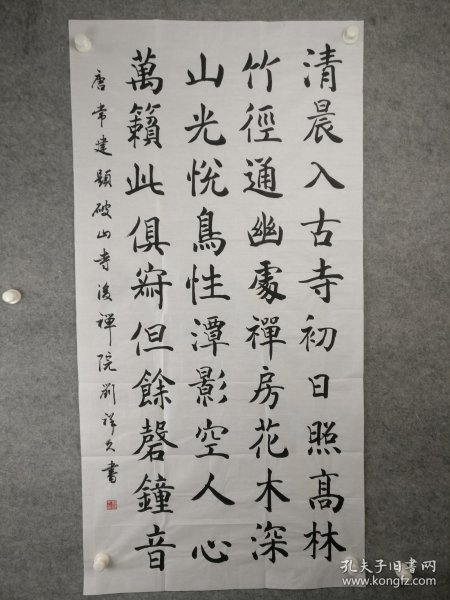 清晨入古寺初日照髙林
竹徑通幽處禪房花木深
山光悅鳥性潭影空人心
萬籟此俱寂但餘磬鐘音
唐常建題破山寺後禪院劉祥久書
孔夫子旧书网
www.kongfz.com